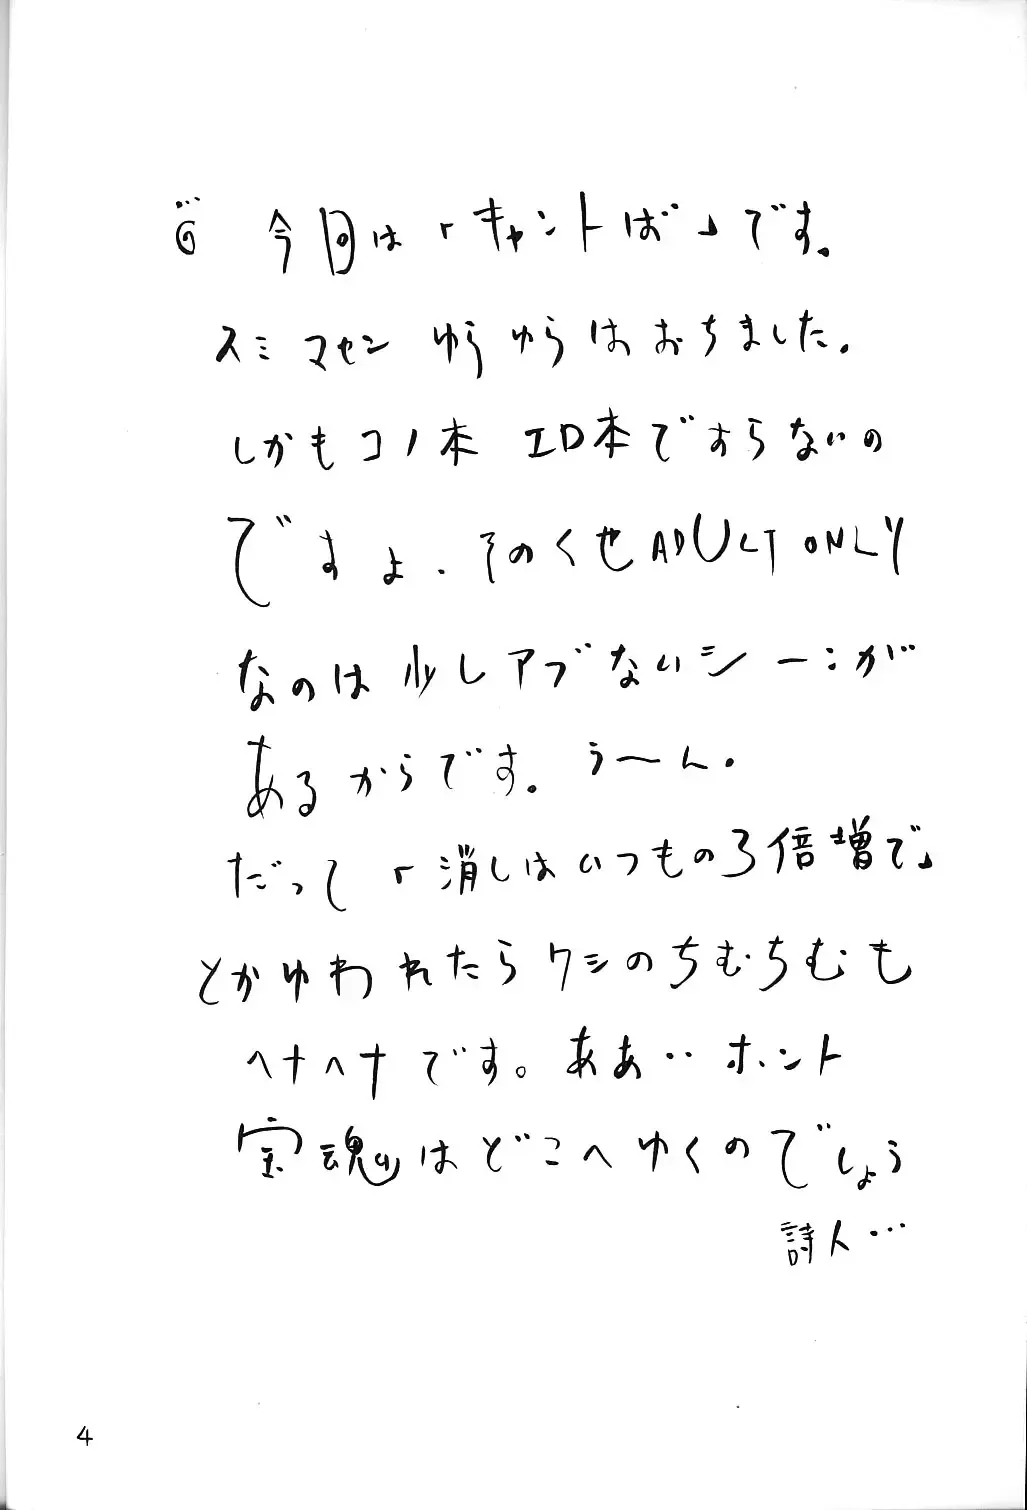 今回は「キャントば」です。
スミマセン ゆらゆらはおちました。
しかもコノ本 エロ本ですらないの
ですよ. そのくせ ADULT ONLY
なのは少しアブないシーンが
あるからです。う〜ん.
だって「消しはいつもの3倍増で」
とかゆわれたらワシのちむちむも
ヘナヘナです。ああ‥ホント
宝魂はどこへゆくのでしょう
詩人…
4